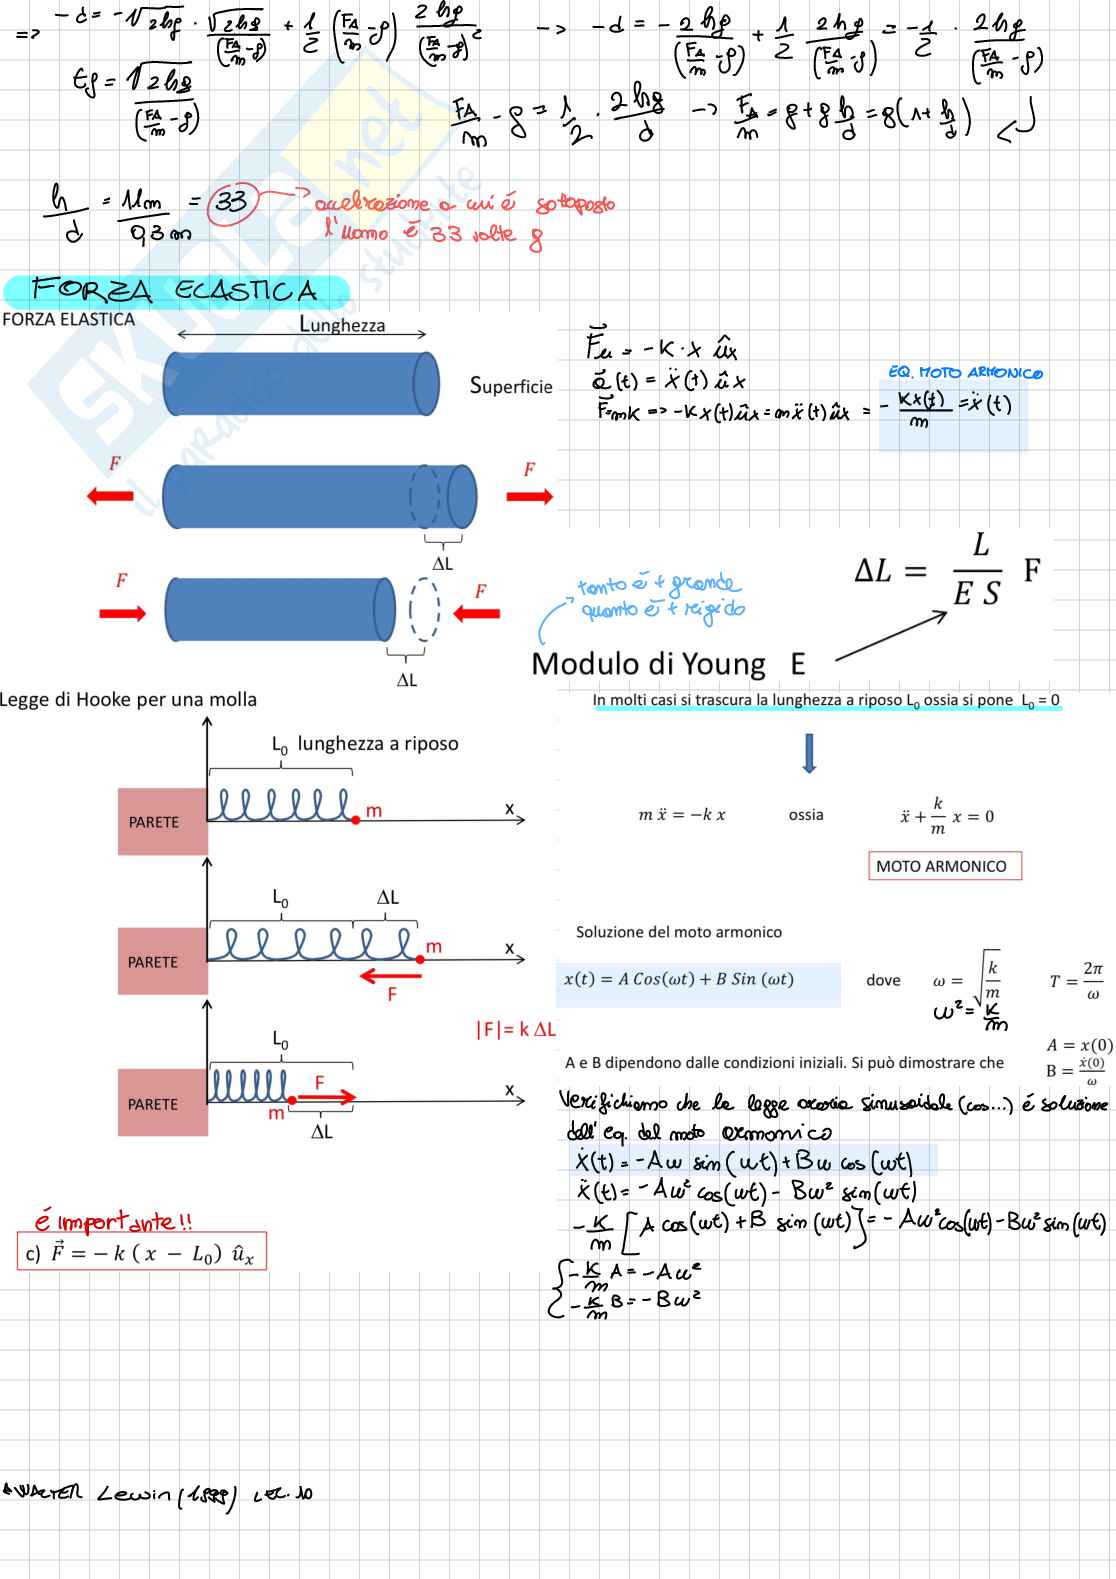 => -d = -√2hg · √2hg/(FA/m - g) + 1/2 (FA/m - g) 2hg/(FA/m - g)² -> -d = - 2hg/(FA/m - g) + 1/2 2hg/(FA/m - g) = -1/2 · 2hg/(FA/m - g)
tf = √2hg/(FA/m - g)
FA/m - g = 1/2 · 2hg/d -> FA/m = g + g h/d = g(1 + h/d)
h/d = 11m/0,3m = 33 -> accelerazione a cui è sottoposto
l'uomo è 33 volte g
SKUOLA.net
il paradiso dello studente
FORZA ELASTICA
FORZA ELASTICA
Lunghezza
Superficie
F F
ΔL
F F
ΔL
F⃗el = -K·x ûx
a⃗(t) = ẍ(t) ûx
EQ. MOTO ARMONICO
-Kx(t)ûx = mẍ(t)ûx = - Kx(t)/m = ẍ(t)
ΔL = L/(E S) F
tanto è + grande
quanto è + rigido
Modulo di Young E
Legge di Hooke per una molla
L₀ lunghezza a riposo
PARETE m x
L₀ ΔL
PARETE m x
F
|F|= k ΔL
L₀
PARETE F x
m
ΔL
è importante!!
c) F⃗ = − k ( x − L₀) ûₓ
In molti casi si trascura la lunghezza a riposo L₀ ossia si pone L₀ = 0
m ẍ = −k x ossia ẍ + k/m x = 0
MOTO ARMONICO
Soluzione del moto armonico
x(t) = A Cos(ωt) + B Sin (ωt) dove ω = √(k/m) T = 2π/ω
ω² = K/m
A = x(0)
A e B dipendono dalle condizioni iniziali. Si può dimostrare che B = ẋ(0)/ω
Verifichiamo che la legge oraria sinusoidale (cos...) è soluzione
dell'eq. del moto armonico
ẋ(t) = -Aω sin(ωt) + Bω cos(ωt)
ẍ(t) = -Aω² cos(ωt) - Bω² sin(ωt)
-K/m [A cos(ωt) + B sin(ωt)] = -Aω² cos(ωt) - Bω² sin(ωt)
{ -K/m A = -Aω²
-K/m B = -Bω²
WALTER Lewin (1999) LEC. 10